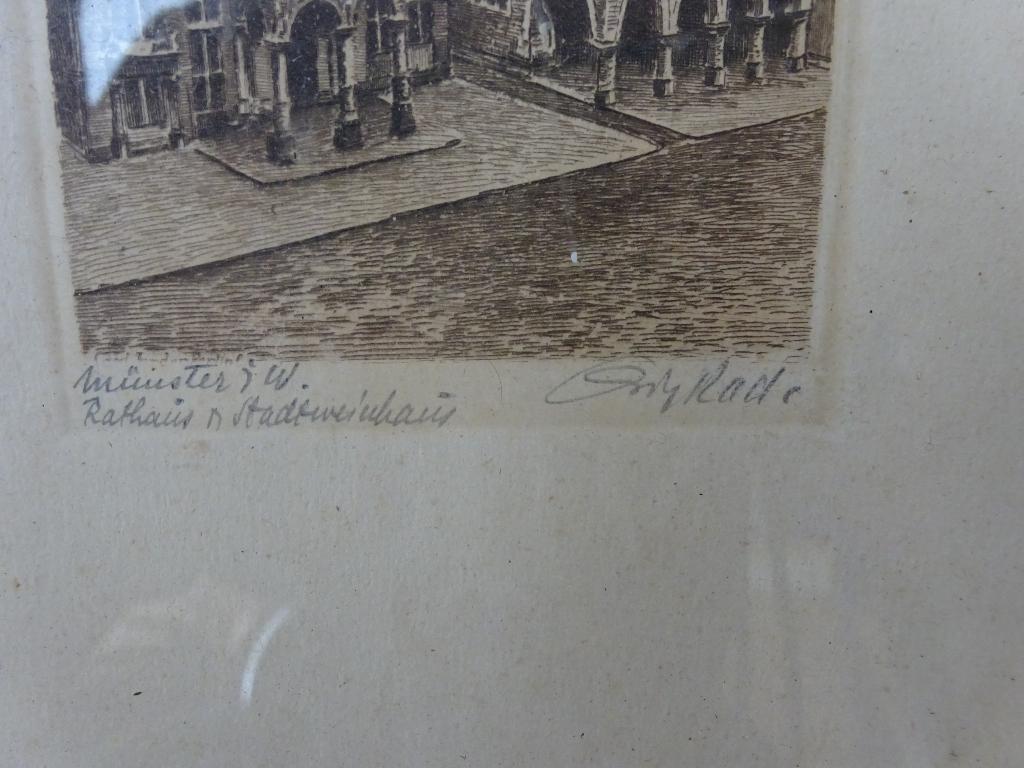 Münster i W.
Rathaus n Stadtweinhaus
Rad